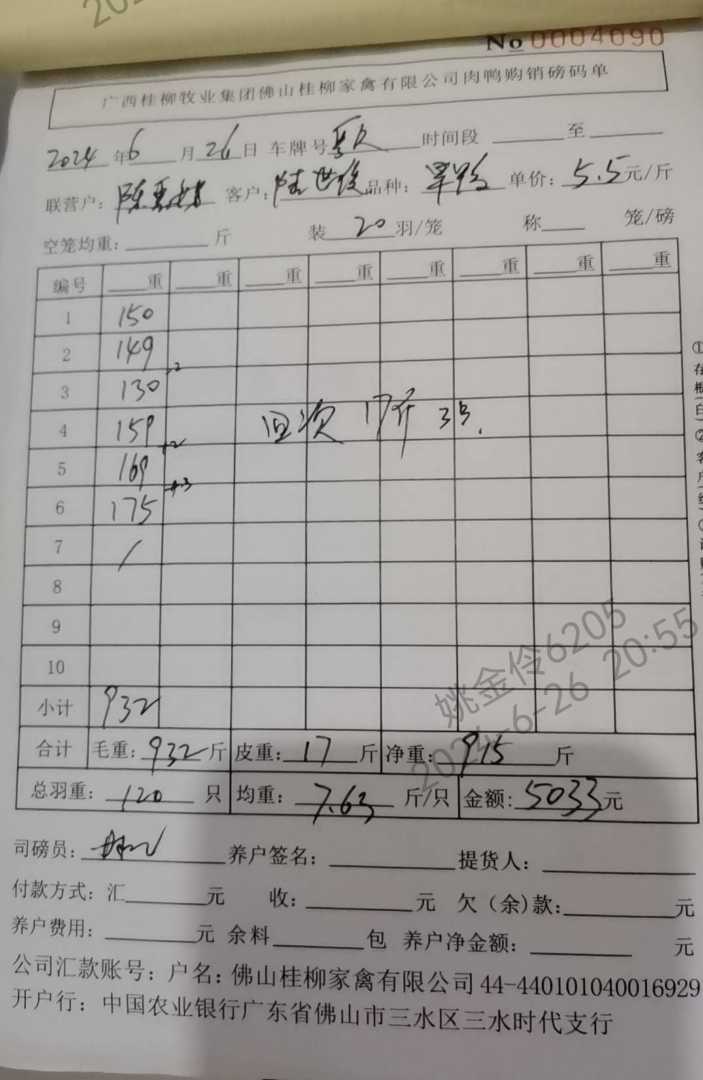 No 0004090
广西桂柳牧业集团佛山桂柳家禽有限公司肉鸭购销磅码单
2024年6月26日 车牌号 时间段 至
联营户: 陈 客户: 陆世 品种: 单价: 5.5元/斤
空笼均重: 斤 装20羽/笼 称 笼/磅
编号 重 重 重 重 重 重 重 重
1 150
2 149
3 130
4 159 回次 17斤 3只.
5 169
6 175
7 /
8
9
10
小计 932
合计 毛重: 932斤 皮重: 17斤 净重: 915斤
总羽重: 120只 均重: 7.63斤/只 金额: 5033元
司磅员: 养户签名: 提货人:
付款方式: 汇 元 收: 元 欠(余)款: 元
养户费用: 元 余料 包 养户净金额: 元
公司汇款账号: 户名: 佛山桂柳家禽有限公司 44-440101040016929
开户行: 中国农业银行广东省佛山市三水区三水时代支行
姚金伶6205
2024-6-26 20:55